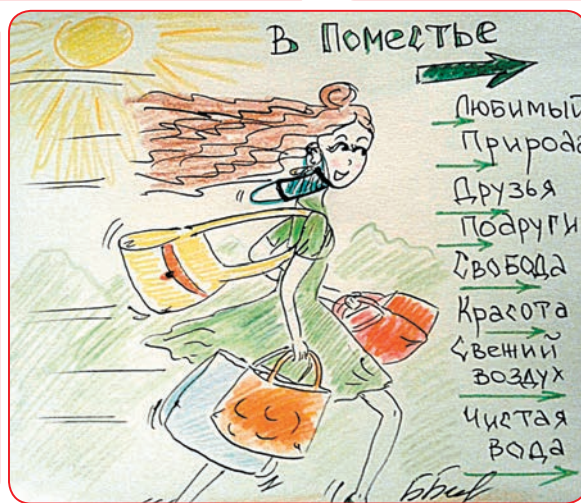 В Поместье
Любимый
Природа
Друзья
Подруги
Свобода
Красота
Свежий
воздух
Чистая
вода